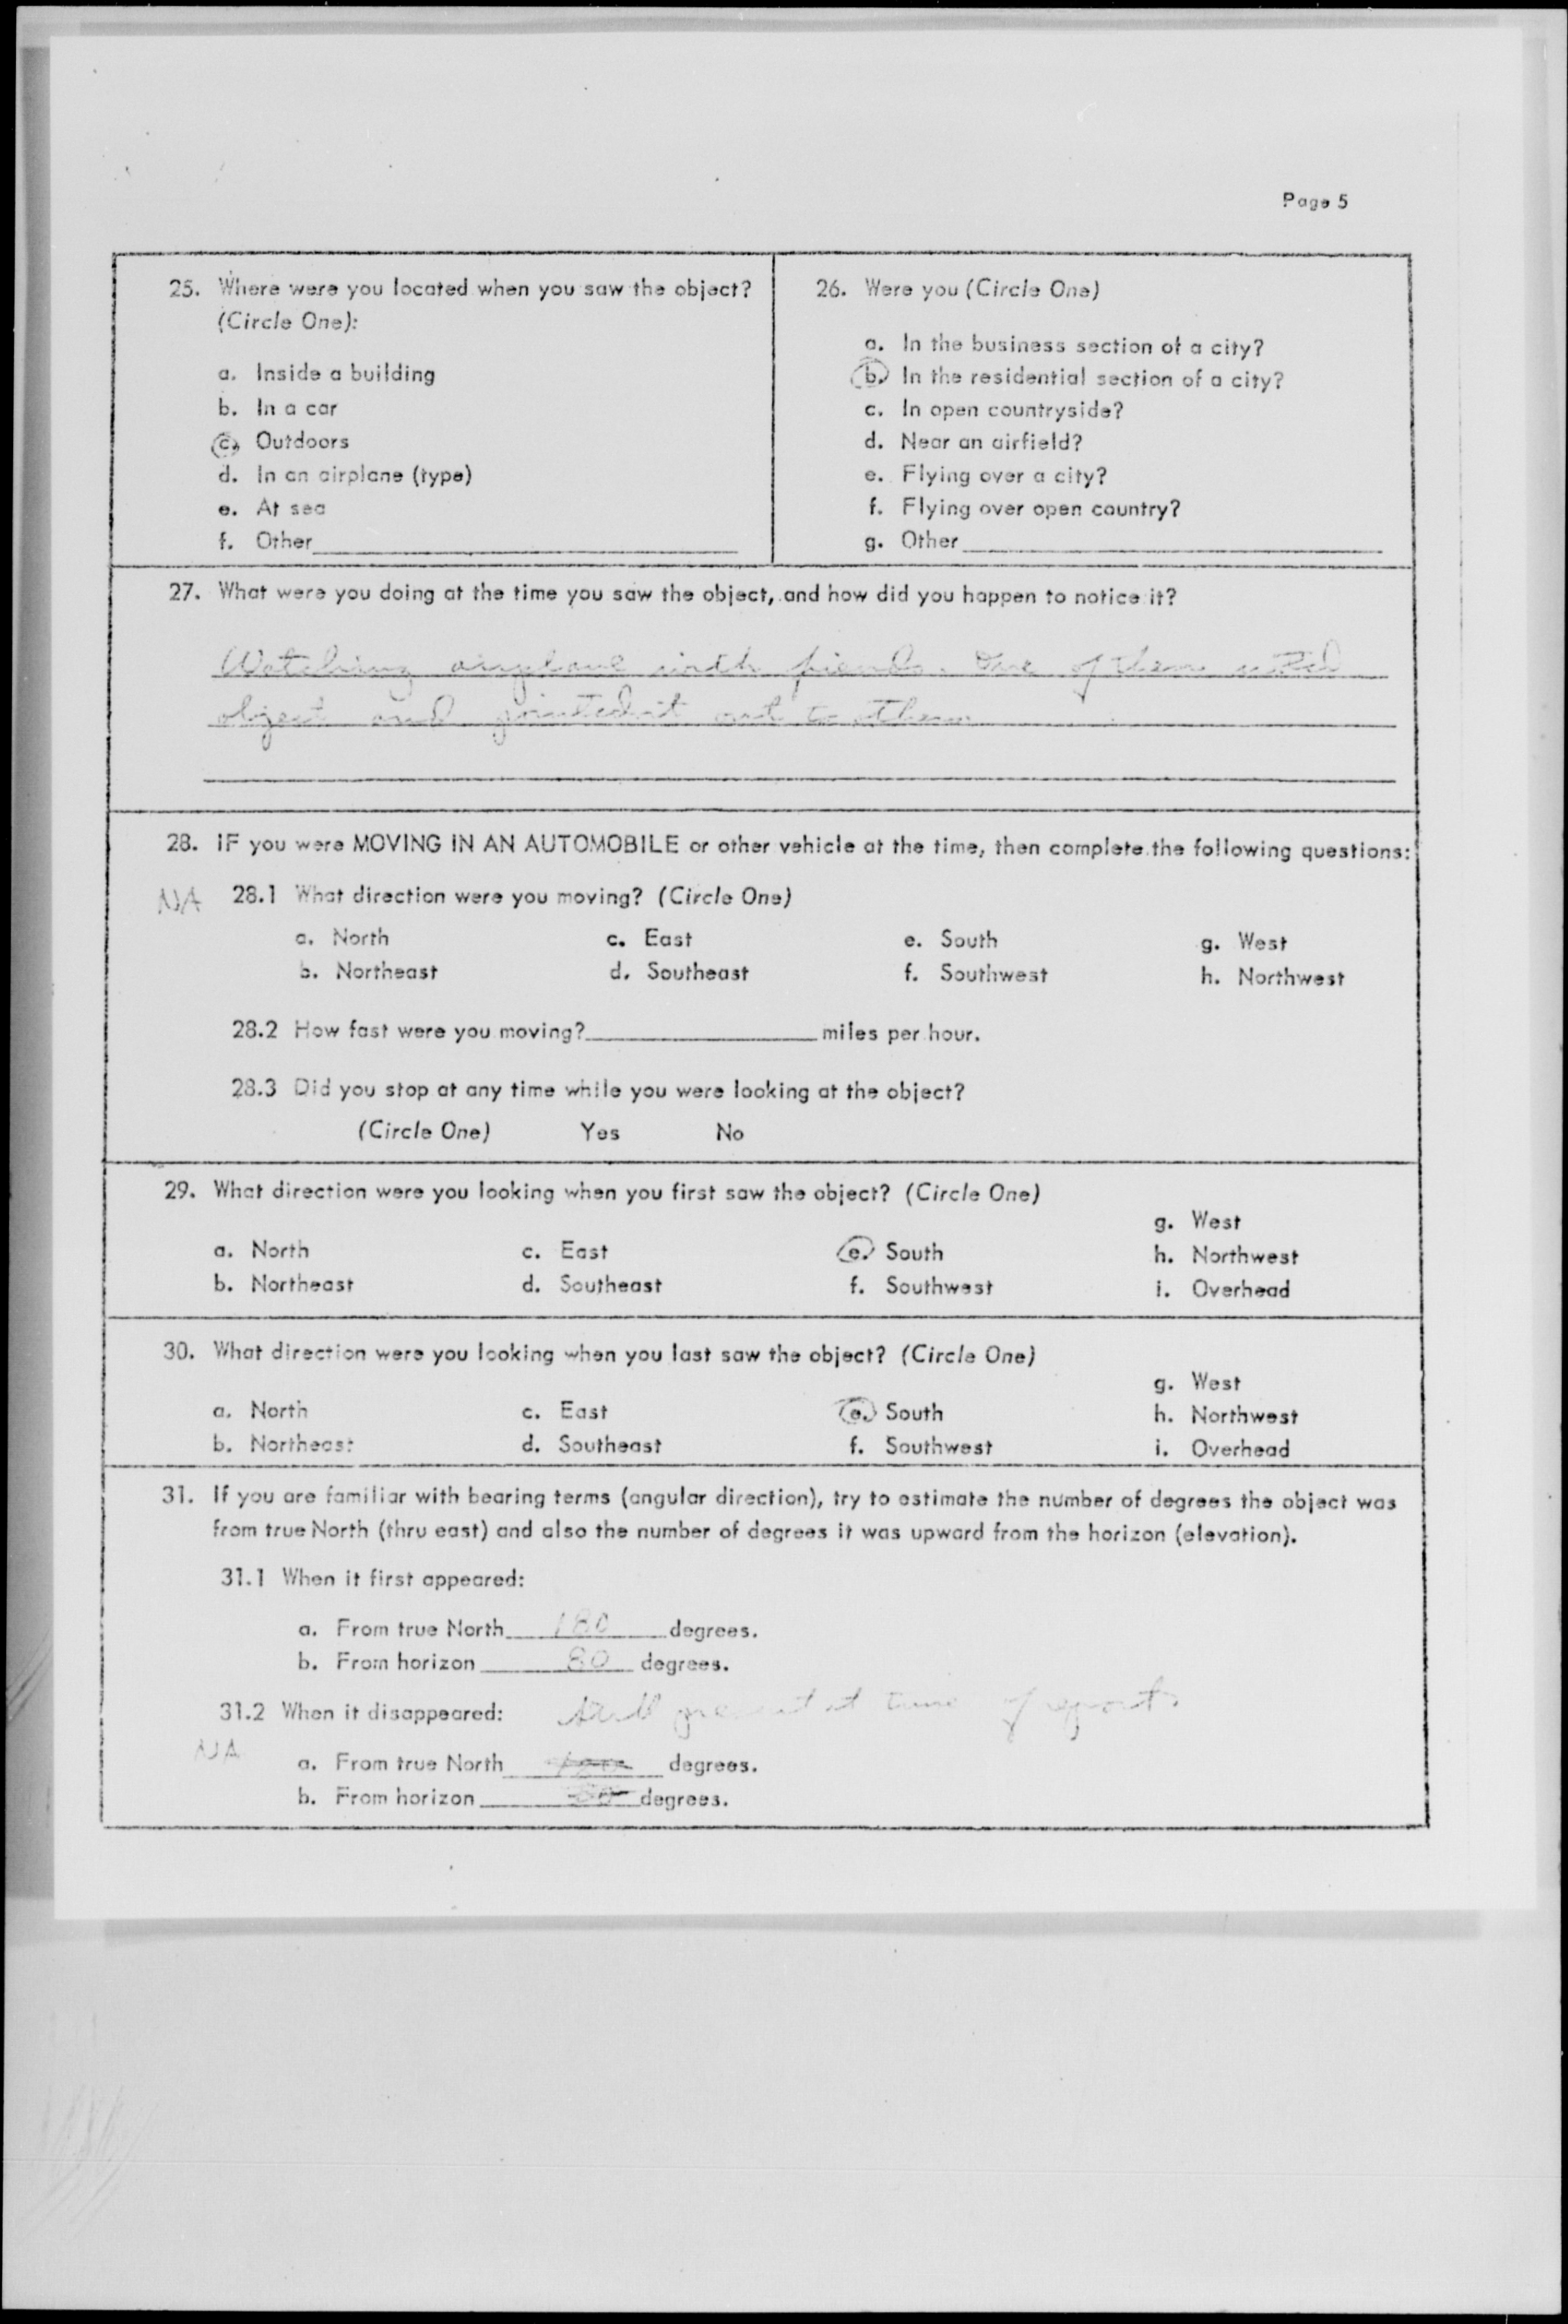 Page 5
25. Where were you located when you saw the object?
(Circle One):
a. Inside a building
b. In a car
c. Outdoors
d. In an airplane (type)
e. At sea
f. Other
26. Were you (Circle One)
a. In the business section of a city?
b. In the residential section of a city?
c. In open countryside?
d. Near an airfield?
e. Flying over a city?
f. Flying over open country?
g. Other
27. What were you doing at the time you saw the object, and how did you happen to notice it?
Watching airplane with friends. One of them noted
object and pointed it out to others
28. IF you were MOVING IN AN AUTOMOBILE or other vehicle at the time, then complete the following questions:
NA 28.1 What direction were you moving? (Circle One)
a. North c. East e. South g. West
b. Northeast d. Southeast f. Southwest h. Northwest
28.2 How fast were you moving? miles per hour.
28.3 Did you stop at any time while you were looking at the object?
(Circle One) Yes No
29. What direction were you looking when you first saw the object? (Circle One)
g. West
a. North c. East e. South h. Northwest
b. Northeast d. Southeast f. Southwest i. Overhead
30. What direction were you looking when you last saw the object? (Circle One)
g. West
a. North c. East e. South h. Northwest
b. Northeast d. Southeast f. Southwest i. Overhead
31. If you are familiar with bearing terms (angular direction), try to estimate the number of degrees the object was
from true North (thru east) and also the number of degrees it was upward from the horizon (elevation).
31.1 When it first appeared:
a. From true North 180 degrees.
b. From horizon 80 degrees.
31.2 When it disappeared: still present at time of report.
NA
a. From true North 180 degrees.
b. From horizon 80 degrees.